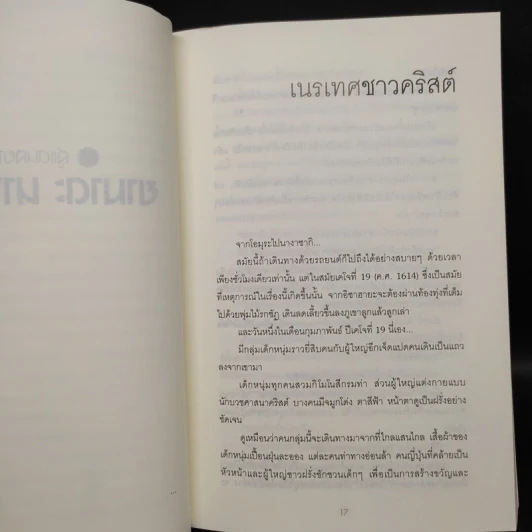 เนรเทศชาวคริสต์
จากโอมุระไปนางาซากิ...
สมัยนี้ถ้าเดินทางด้วยรถยนต์ก็ไปถึงได้อย่างสบายๆ ด้วยเวลา
เพียงชั่วโมงเดียวเท่านั้น แต่ในสมัยเคโจที่ 19 (ค.ศ. 1614) ซึ่งเป็นสมัย
ที่เหตุการณ์ในเรื่องนี้เกิดขึ้นนั้น จากอิซาฮายะจะต้องผ่านท้องทุ่งที่เต็ม
ไปด้วยพุ่มไม้รกชัฏ เดินลดเลี้ยวขึ้นลงภูเขาลูกแล้วลูกเล่า
และวันหนึ่งในเดือนกุมภาพันธ์ ปีเคโจที่ 19 นี้เอง...
มีกลุ่มเด็กหนุ่มราวยี่สิบคนกับผู้ใหญ่อีกเจ็ดแปดคนเดินเป็นแถว
ลงจากเขามา
เด็กหนุ่มทุกคนสวมกิโมโนสีกรมท่า ส่วนผู้ใหญ่แต่งกายแบบ
นักบวชศาสนาคริสต์ บางคนมีจมูกโด่ง ตาสีฟ้า หน้าตาดูเป็นฝรั่งอย่าง
ชัดเจน
ดูเหมือนว่าคนกลุ่มนี้จะเดินทางมาจากที่ไกลแสนไกล เสื้อผ้าของ
เด็กหนุ่มเปื้อนฝุ่นละออง แต่ละคนท่าทางอ่อนล้า คนญี่ปุ่นที่คล้ายเป็น
หัวหน้าและผู้ใหญ่ชาวฝรั่งชักชวนเด็กๆ เพื่อเป็นการสร้างขวัญและ
17